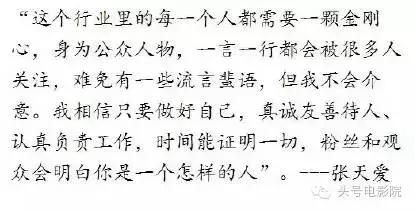 “这个行业里的每一个人都需要一颗金刚
心，身为公众人物，一言一行都会被很多人
关注，难免有一些流言蜚语，但我不会介
意。我相信只要做好自己，真诚友善待人、
认真负责工作，时间能证明一切，粉丝和观
众会明白你是一个怎样的人”。---张天爱
头号电影院